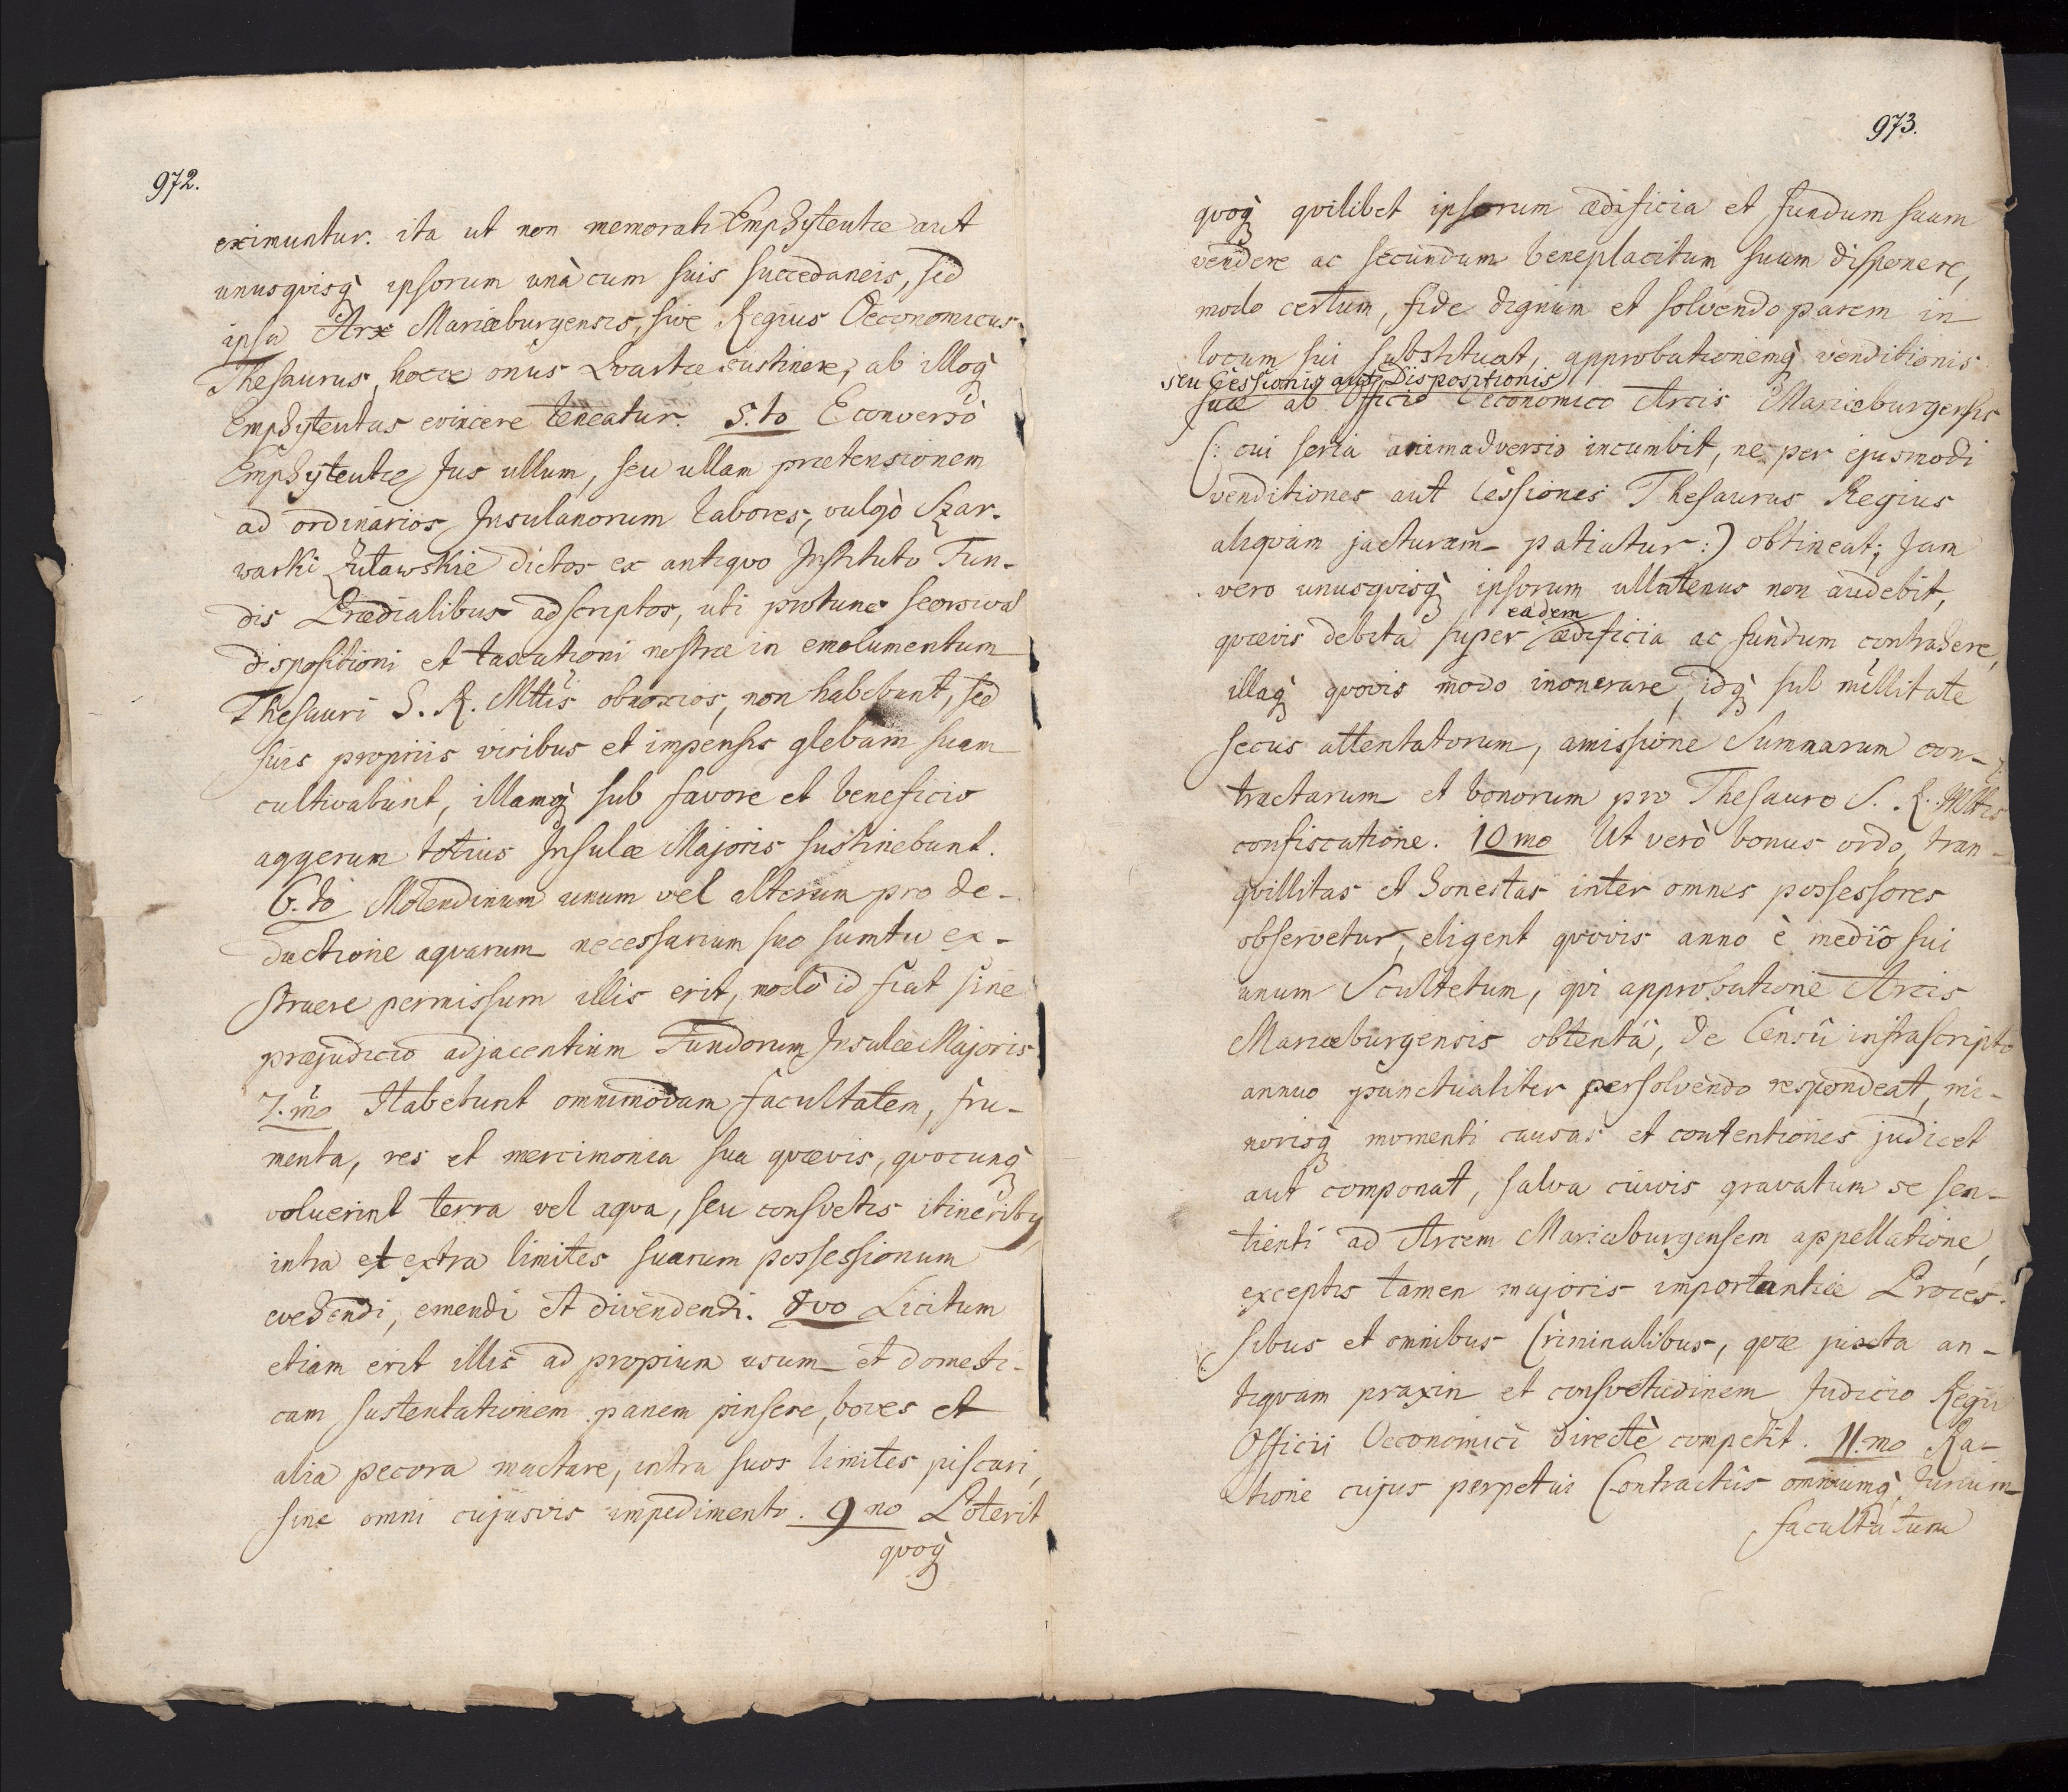 972.
eximuntur. ita ut non memorati Emphyteutæ aut
unusqvisq̀ ipsorum unà cum suis succedaneis, sed
ipsa Arx Mariæburgensis, sive Regius Oeconomicus
Thesaurus, hocce onus Qvartæ sustinere, ab illoq̀
Emphyteutas evincere teneatur. 5.to Econversò
Emphyteutæ Jus ullum, seu ullam prætensionem
ad ordinarios Insulanorum labores, vulgò Szar-
warki Żuławskie dictos ex antiquo Instituto Fun-
dis Prædialibus adscriptos, uti protunc seorsivæ
dispositioni et taxationi nostræ in emolumentum
Thesauri S. R. Mttis obnoxios, non habebunt, sed
suis propriis viribus et impensis glebam suam
cultivabunt, illamq̀ sub favore et beneficio
aggerum totius Insulæ Majoris sustinebunt.
6.to Molendinum unum vel alterum pro de-
ductione aqvarum necessarium suo sumtu ex-
struere permissum illis erit, modò id fiat sine
præjudicio adjacentium Fundorum Insulæ Majoris
7.mo Habebunt omnimodam facultatem, fru-
menta, res et mercimonia sua qvævis, qvocunq̀
voluerint terra vel aqva, seu consvetis itineriby
intra et extra limites suarum possessionum
evehendi, emendi et divendendi. 8vo Licitum
etiam erit illis ad propium usum et domesti-
cam sustentationem panem pinsere, boves et
alia pecora mactare, intra suos limites piscari,
sine omni cujusvis impedimento. 9no Poterit
qvoq̀
973.
qvoq̀ qvilibet ipsorum ædificia et fundum suum
vendere ac secundum beneplacitum suum disponere,
modo certum, fide dignum et solvendo parem in
locum sui substituat, approbationemq̀ venditionis
seu Cessionis aut Dispositionis
suæ ab Officio Oeconomico Arcis Mariæburgensis
(: cui seria animadversio incumbit, ne per ejusmodi
venditiones aut cessiones Thesaurus Regius
aliqvam jacturam patiatur :) obtineat; Jam
vero unusqvisq̀ ipsorum ullatenus non audebit,
eadem
qvævis debita super ædificia ac fundum contrahere,
illaq̀ qvovis modo inonerare, idq̀ sub nullitate
secus attentatorum, amissione Summarum con-
tractarum et bonorum pro Thesauro S. R. Mttis
confiscatione. 10mo Ut verò bonus ordo, tran-
qvillitas et honestas inter omnes possessores
observetur, eligent qvovis anno è medio sui
unum Scultetum, qvi approbatione Arcis
Mariæburgensis obtentâ, de Censû infrascripto
annuo punctualiter persolvendo respondeat, mi-
norisq̀ momenti causas et contentiones judicet
aut componat, salva cuivis gravatum se sen-
tienti ad Arcem Mariæburgensem appellatione,
exceptis tamen majoris importantiæ Proces-
sibus et omnibus Criminalibus, qvæ juxta an-
tiqvam praxin et consvetudinem Judicio Regii
Officii Oeconomici directè competit. 11.mo Ra-
tione cujus perpetui Contractûs omniumq̀ Jurium
facultatum